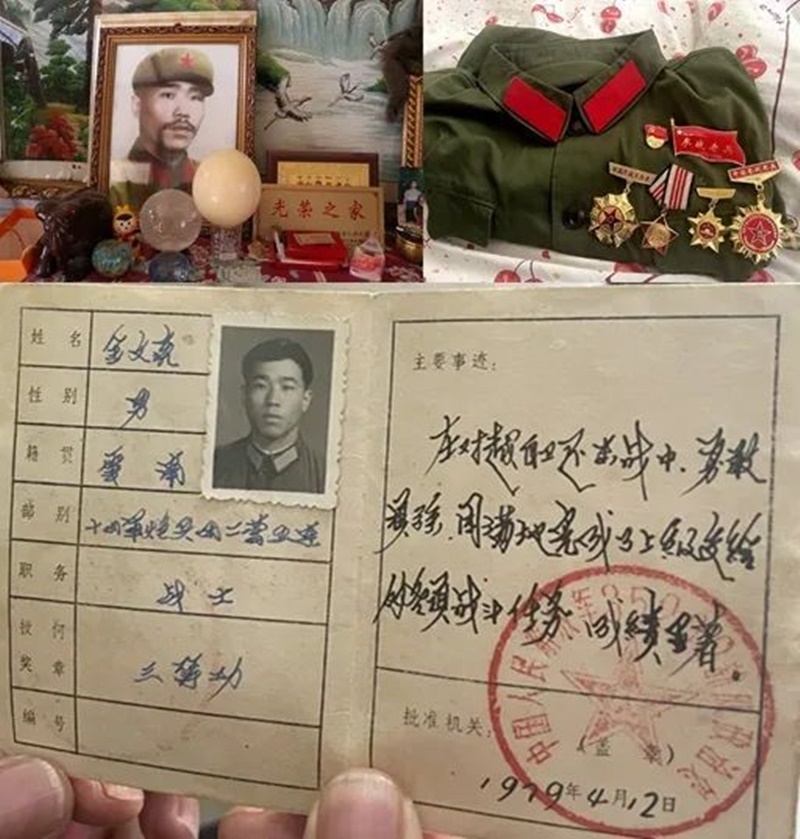 光荣之家
参战老兵
姓名 金文亮
性别 男
籍贯 云南
部别 十四军炮兵团二营五连
职务 战士
授何奖章 三等功
编号
主要事迹：
在对越自卫还击战中，勇敢
顽强，圆满地完成了上级交给
的各项战斗任务 成绩显著。
批准机关：
（盖章）
中国人民解放军
政治部
1979年4月12日